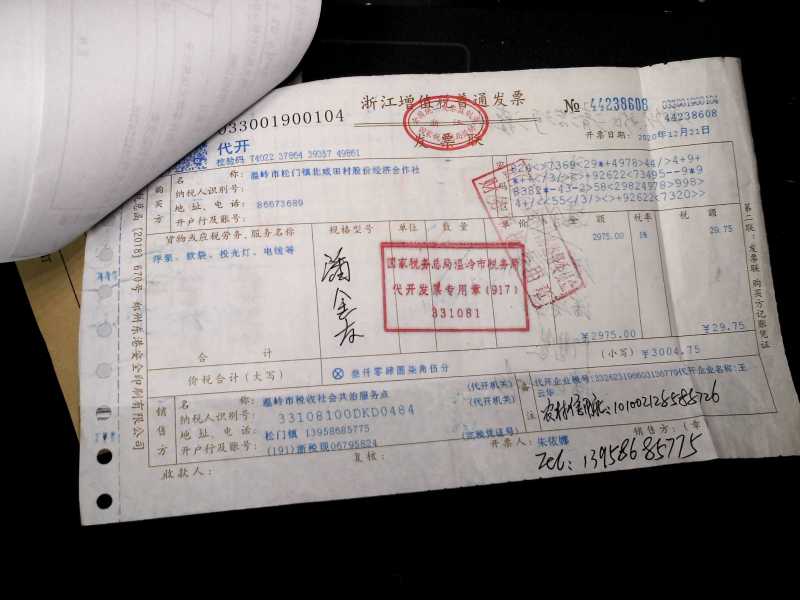 033001900104
浙江增值税普通发票
发票联
№ 44238608
033001900104
44238608
开票日期: 2020年12月21日
代开
校验码 74022 37864 39037 49861
购买方
名称: 温岭市松门镇北咸田村股份经济合作社
纳税人识别号:
地址、电话: 86673689
开户行及账号:
货物或应税劳务、服务名称 规格型号 单位 数量 单价 金额 税率 税额
浮泵、软袋、投光灯、电缆等 2975.00 1% 29.75
国家税务总局温岭市税务局
代开发票专用章(917)
331081
合计 ¥2975.00 ¥29.75
价税合计(大写) ⊗ 叁仟零肆圆柒角伍分 (小写) ¥3004.75
销售方
名称: 温岭市税收社会共治服务点 (代开机关)
纳税人识别号: 33108100DKD0484 (代开机关)
地址、电话: 松门镇 13958685775
开户行及账号: (191)浙税现06795824 (完税凭证号)
备注
代开企业名称:王
云华
101002125585726
收款人: 复核: 开票人: 朱依娜 销售方:(章
Tel: 13958685775
第二联:发票联 购买方记账凭证